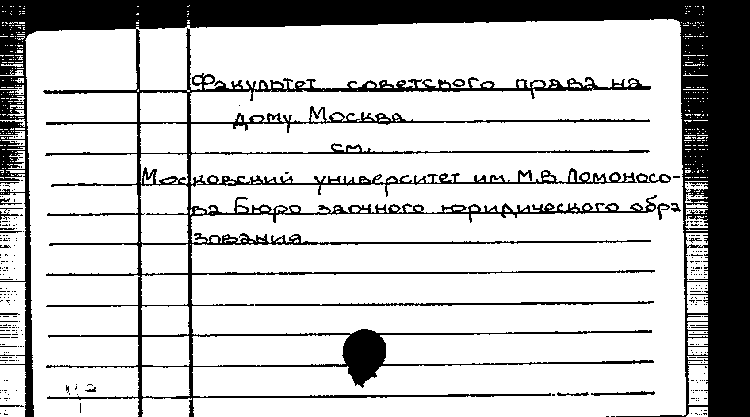 Факультет советского права на
дому. Москва.
см.
Московский университет им. М.В. Ломоносо-
ва Бюро заочного юридического обра
зования.